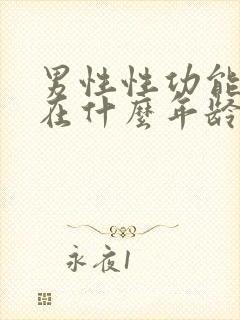 男性性功能
在什麼年龄
永夜1